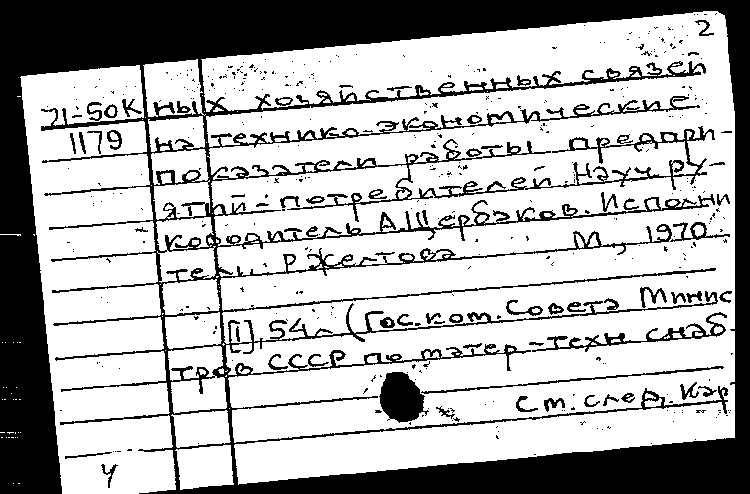 2
71-50К ных хозяйственных связей
1179 на технико-экономические
показатели работы предпри-
ятий-потребителей. Науч. ру-
ководитель А.Щербаков. Исполни
тель: Р.Желтова М., 1970.
[1], 54л. (Гос.ком.Совета Минис
тров СССР по матер-техн снаб-
См. след. кар
4